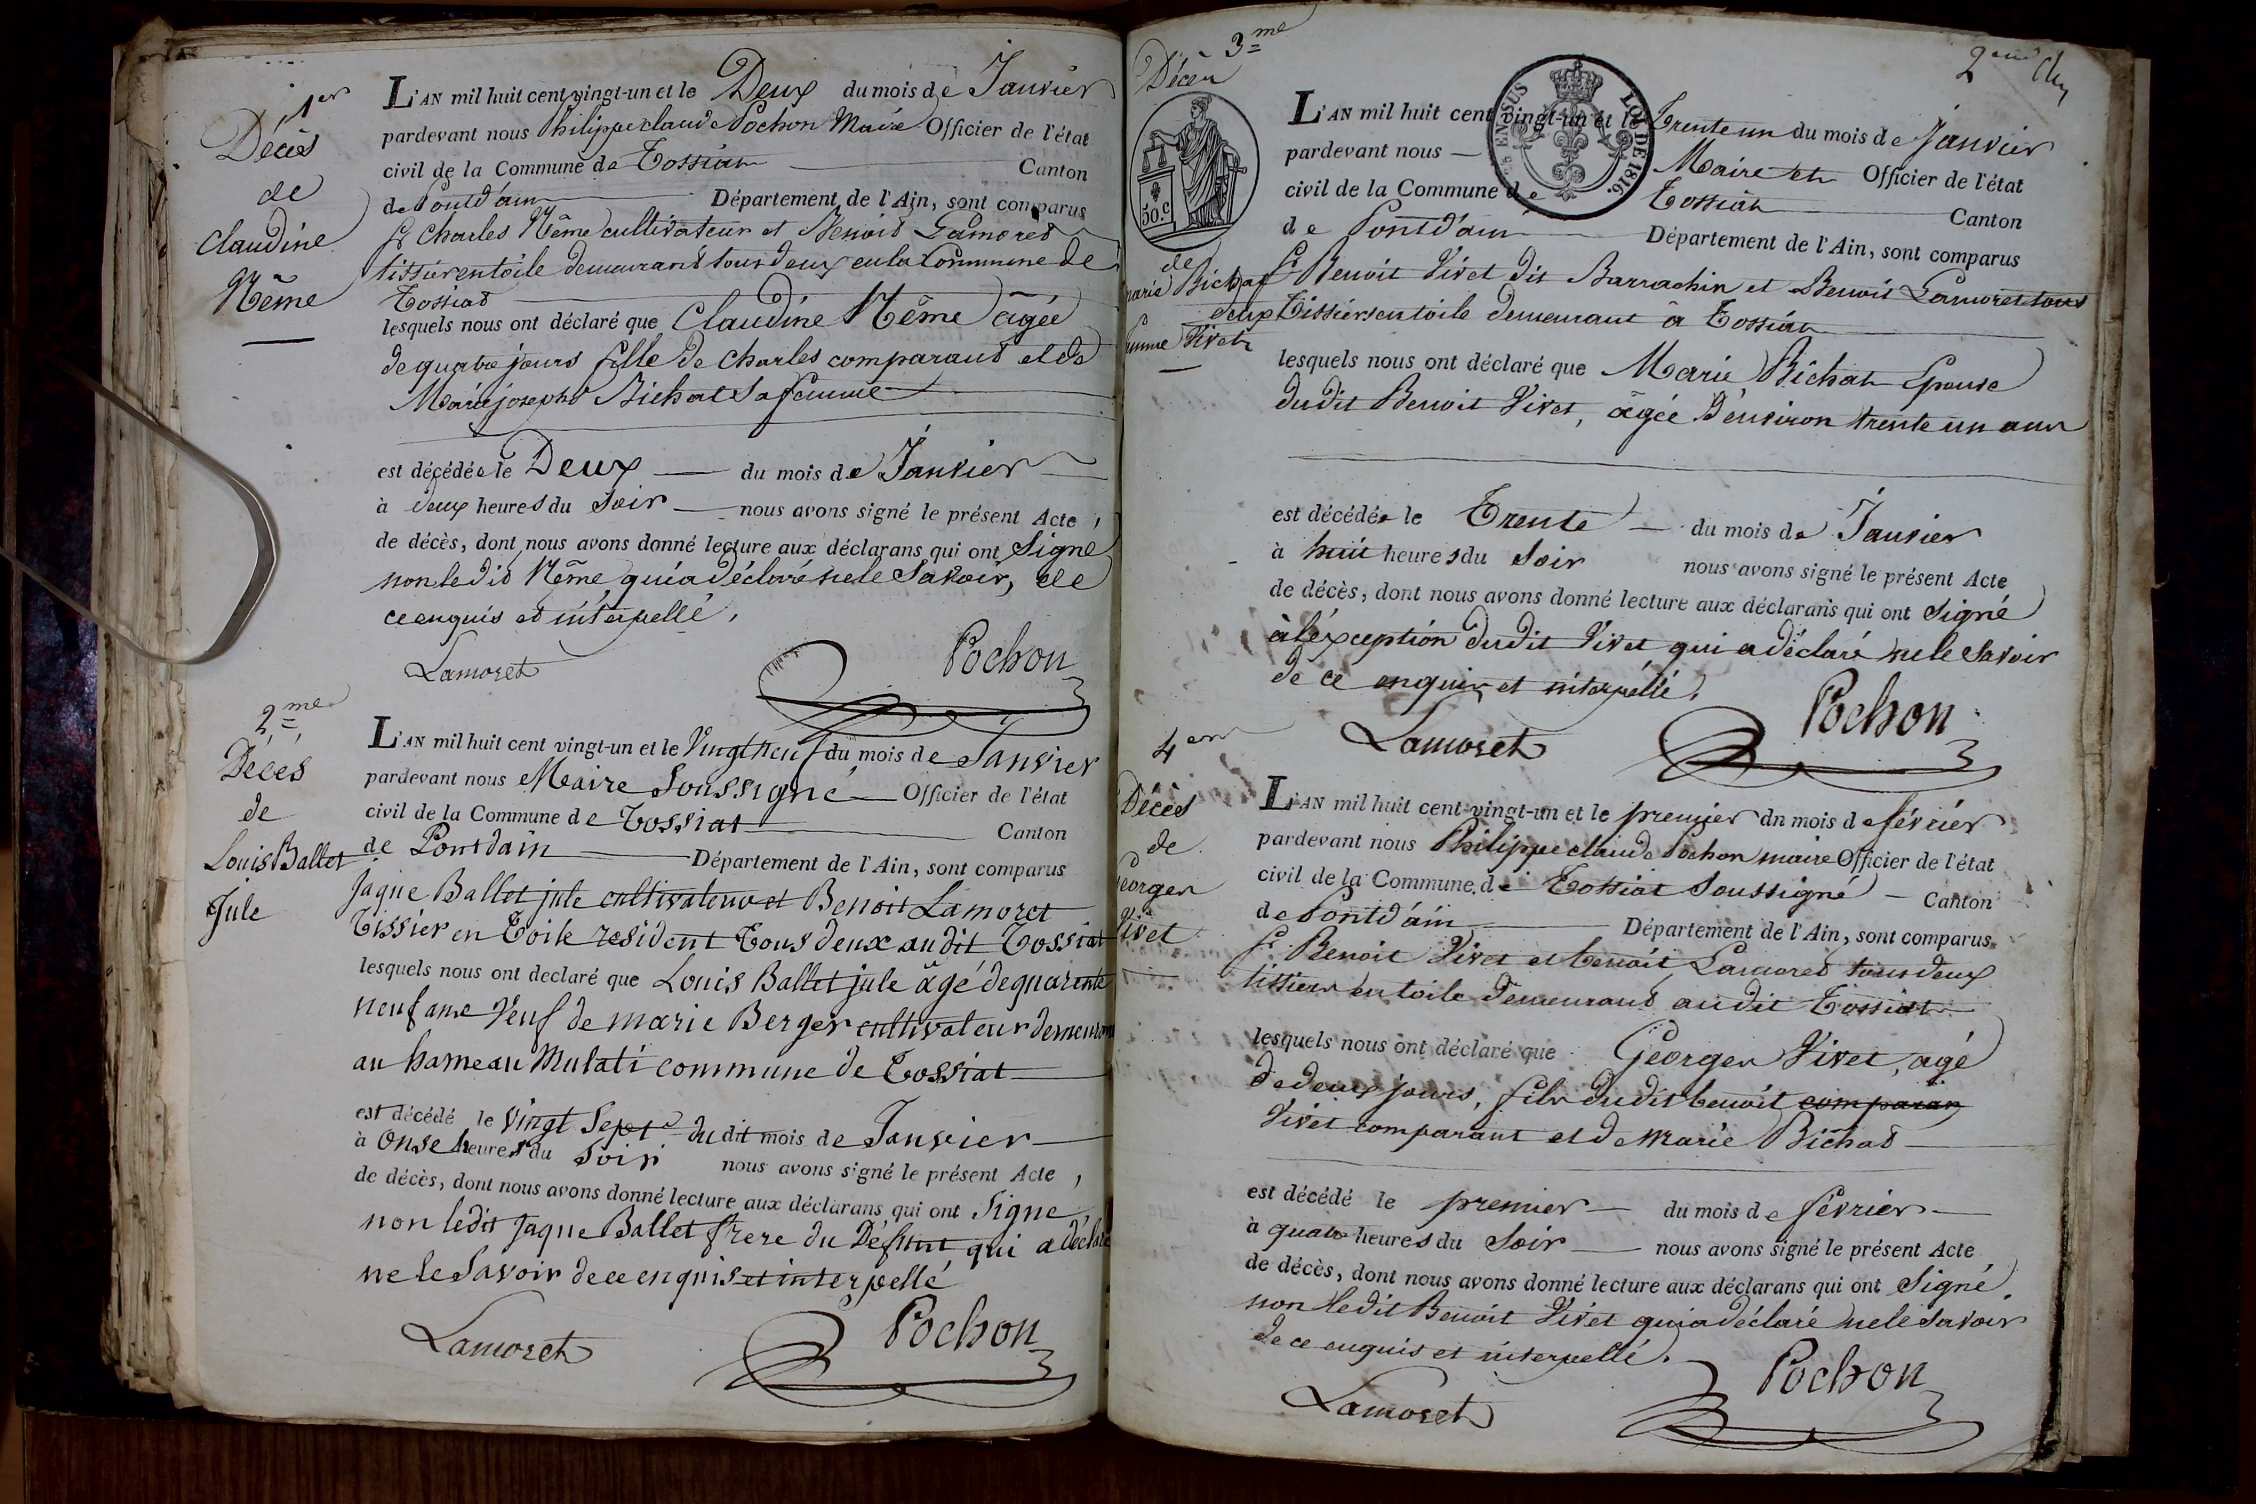 1er
Décès
de
Claudine
Néme
L'AN mil huit cent vingt-un et le Deux du mois de Janvier
pardevant nous Philippe claude Pochon Maire Officier de l'état
civil de la Commune de Tossiat Canton
de Pontd'ain Département de l'Ain, sont comparus
Sr Charles Néme cultivateur et Benoit Lamoret
tissier en toile demeurant tous deux en la Commune de
Tossiat
lesquels nous ont déclaré que Claudine Néme âgée
de quatre jours fille de Charles comparant et de
Marie josephte Bichat Sa femme
est décédée le Deux du mois de Janvier
à deux heures du Soir nous avons signé le présent Acte,
de décès, dont nous avons donné lecture aux déclarans qui ont Signé
non ledit Néme qui a déclaré ne le Savoir, de
ce enquis et interpellé.
Lamoret
Pochon
2.me
Décés
de
Louis Ballet
Jule
L'AN mil huit cent vingt-un et le Vingt neuf du mois de Janvier
pardevant nous Maire Soussigné Officier de l'état
civil de la Commune de Tossiat Canton
de Pontdain Département de l'Ain, sont comparus
Jaque Ballet jule cultivateur et Benoit Lamoret
Tissier en Toile resident Tous deux au dit Tossiat
lesquels nous ont declaré que Louis Ballet jule âgé de quarente
neuf ans Veuf de marie Berger cultivateur
au hameau Mulati commune de Tossiat
est décédé le vingt Sept du dit mois de Janvier
à Onse heures du Soir nous avons signé le présent Acte,
de décès, dont nous avons donné lecture aux déclarans qui ont Signe
non ledit Jaque Ballet frere du Défunt qui a déclaré
ne le Savoir de ce enquis et interpellé
Lamoret
Pochon
3.me
Décès
de
marie Bichat
femme Vivet
2eme
EN SUS
LOI DE 1816.
50.c
L'AN mil huit cent vingt-un et le Trente un du mois de Janvier
pardevant nous Maire et Officier de l'état
civil de la Commune de Tossiat Canton
de Pontd'ain Département de l'Ain, sont comparus
Sr Benoit Vivet dit Barrachin et Benoit Lamoret tous
deux Tissiers en toile demeurant à Tossiat
lesquels nous ont déclaré que Marie Bichat Epouse
dudit Benoit Vivet, âgée d'environ trente un ans
est décédée le Trente du mois de Janvier
à huit heures du Soir nous avons signé le présent Acte
de décès, dont nous avons donné lecture aux déclarans qui ont Signé
à l'éxception dudit Vivet qui a déclaré ne le Savoir
de ce enquis et interpellé.
Lamoret
Pochon
4em
Décès
de
Georges
Vivet
L'AN mil huit cent vingt-un et le premier dn mois de février
pardevant nous Philippe claude Pochon maire Officier de l'état
civil de la Commune de Tossiat Soussigné Canton
de Pontd'ain Département de l'Ain, sont comparus
Sr Benoit Vivet et benoit Lamoret tous deux
tissiers en toile demeurant audit Tossiat
lesquels nous ont déclaré que Georges Vivet, agé
de deux jours, fils dudit benoit comparan
Vivet comparant et de Marie Bichat
est décédé le premier du mois de février
à quatre heures du Soir nous avons signé le présent Acte
de décès, dont nous avons donné lecture aux déclarans qui ont Signé,
non ledit Benoit Vivet qui a déclaré ne le Savoir
de ce enquis et interpellé.
Lamoret
Pochon